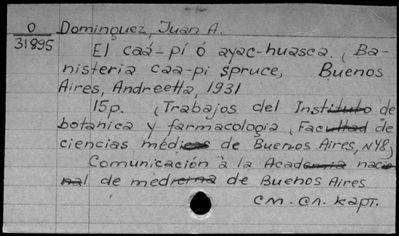 O Dominguez, Juan A.
31895 El caá-pí ó ayac-huasca, (Ba-
nisteria caa-pi spruce, Buenos
Aires, Andreetta, 1931
15p. (Trabajos del Instituto de
botanica y farmacologia, Facultad de
ciencias médicas de Buenos Aires, N98)
Comunicación à la Academia nacio
nal de medicina de Buenos Aires
см. сл. карт.